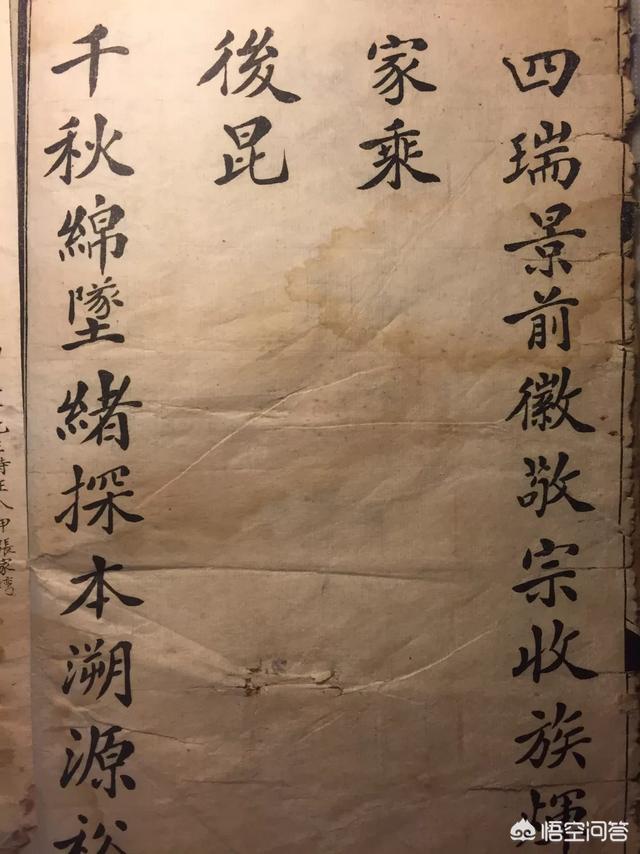 四瑞景前徽敬宗收族輝
家乘
後昆
千秋綿墜緒探本溯源裕
八甲張家灣
悟空问答